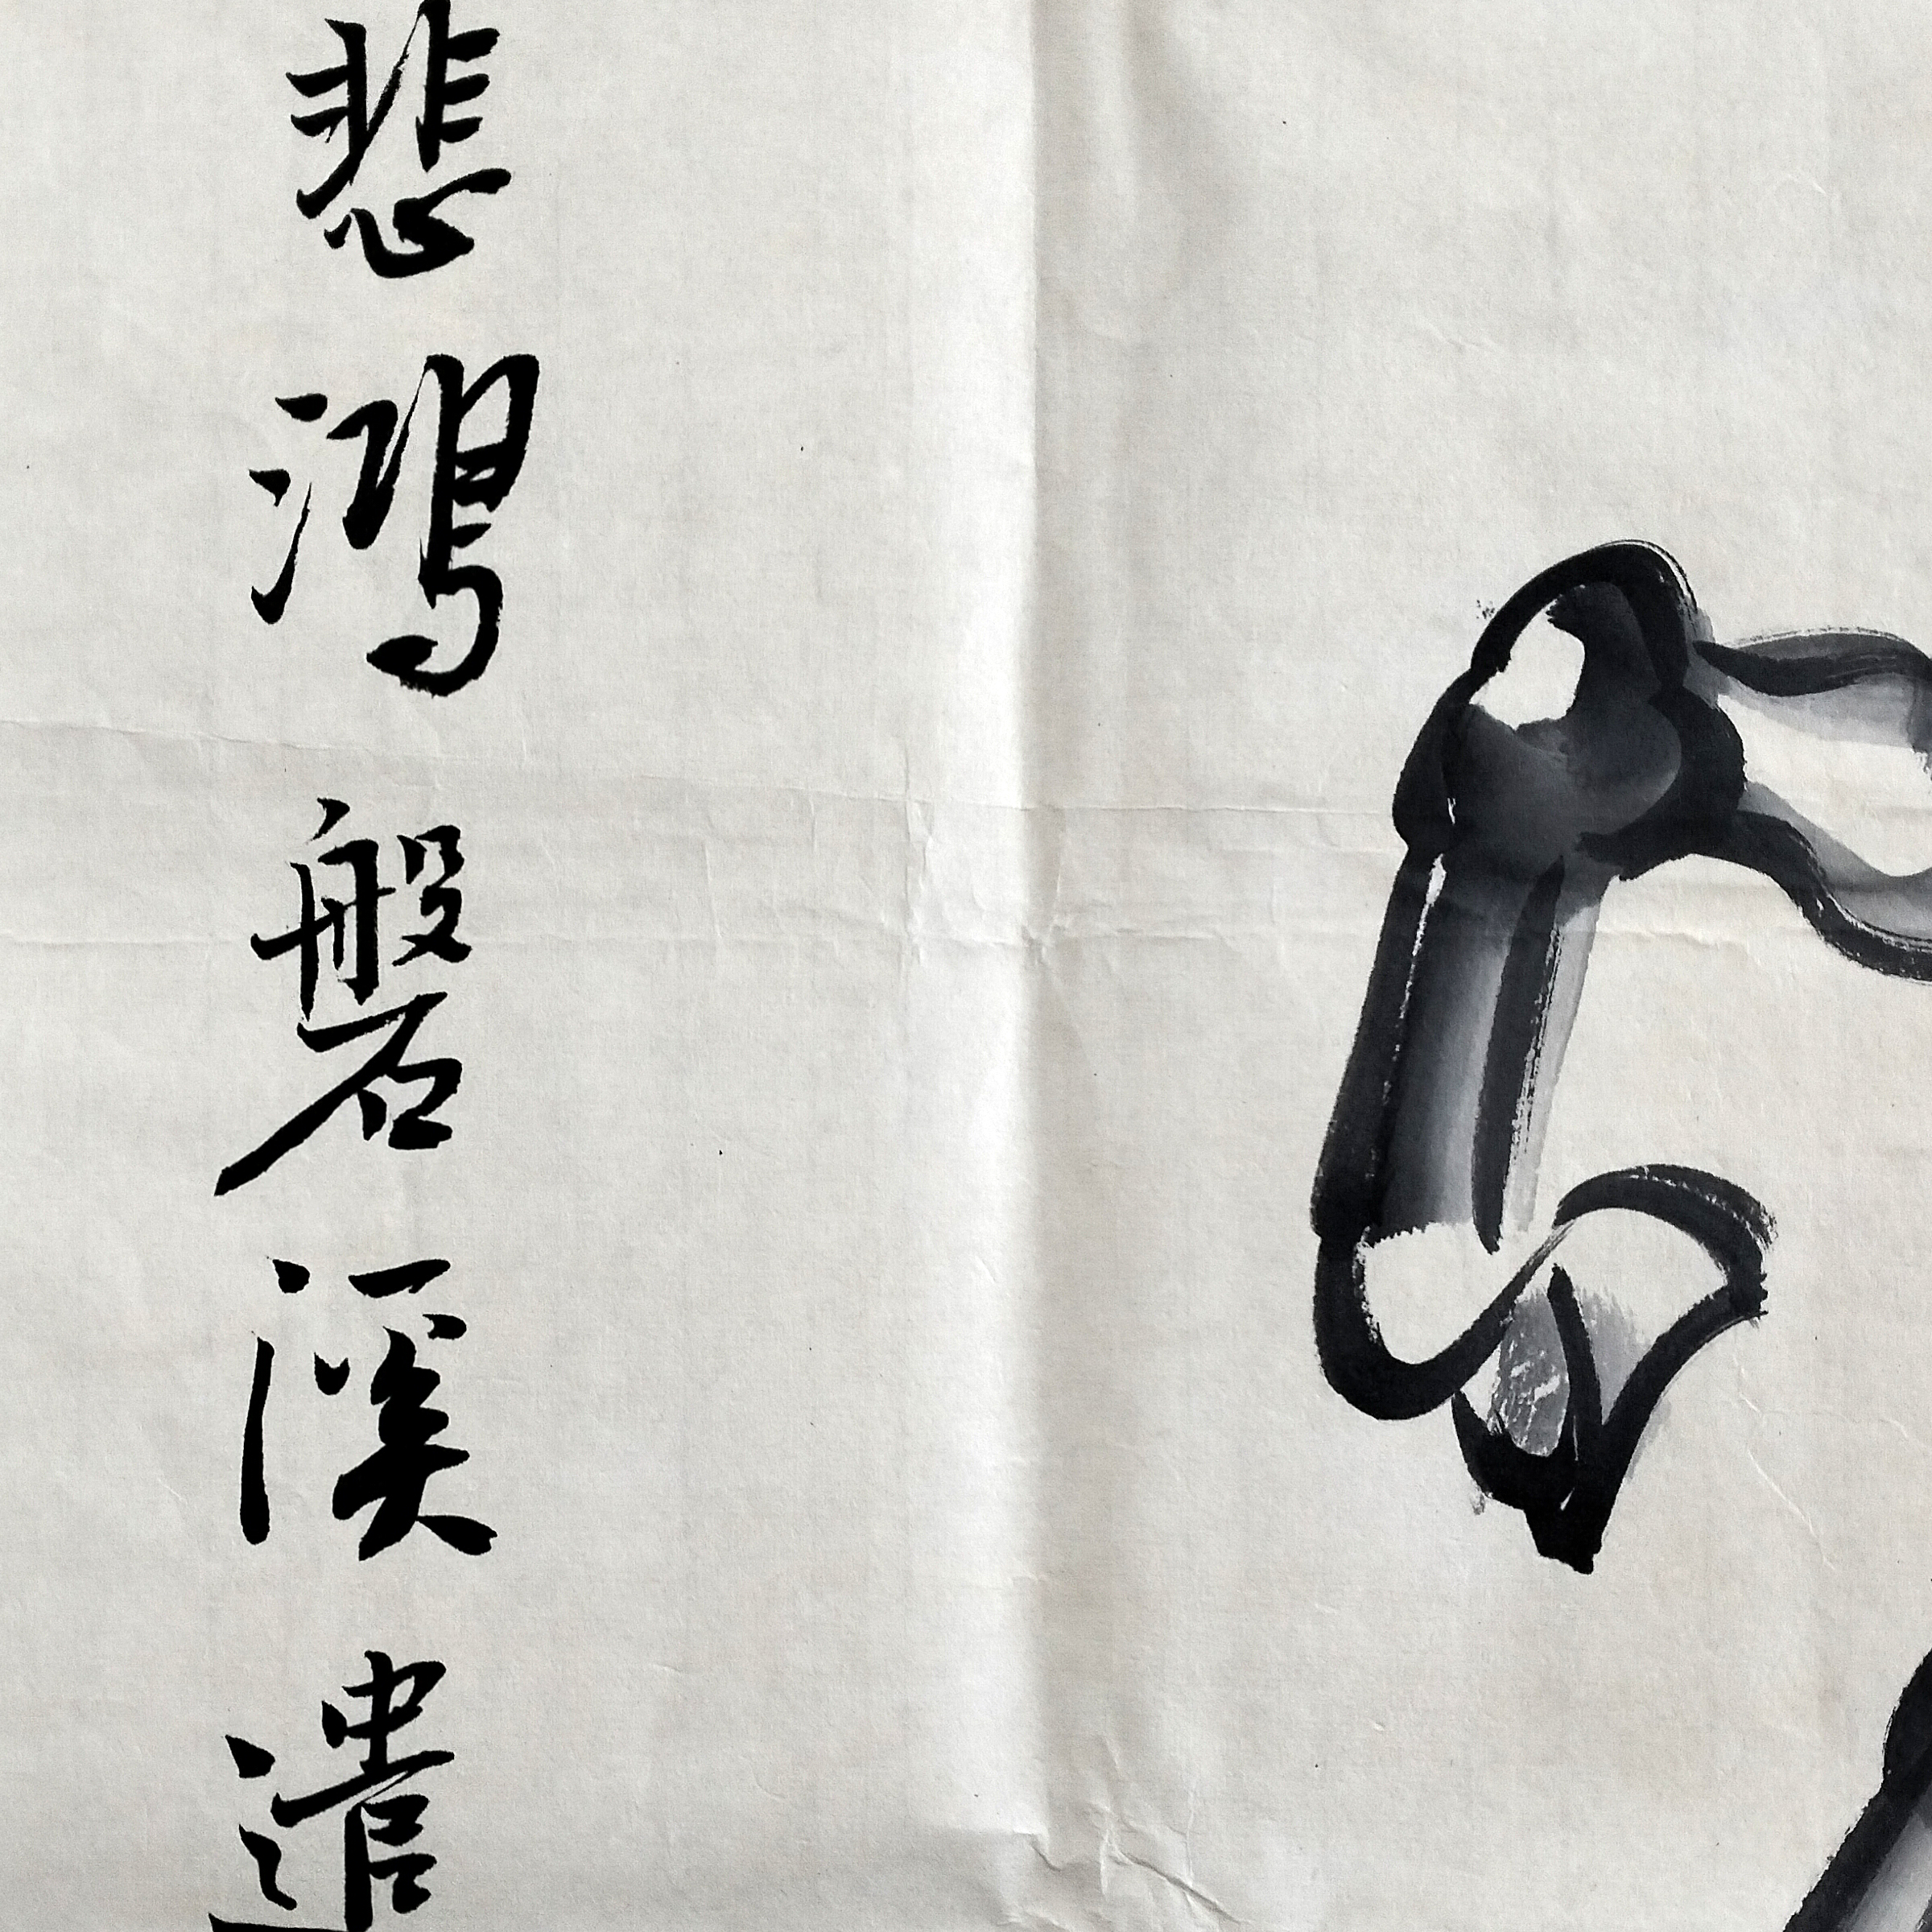 悲鴻磐溪遣